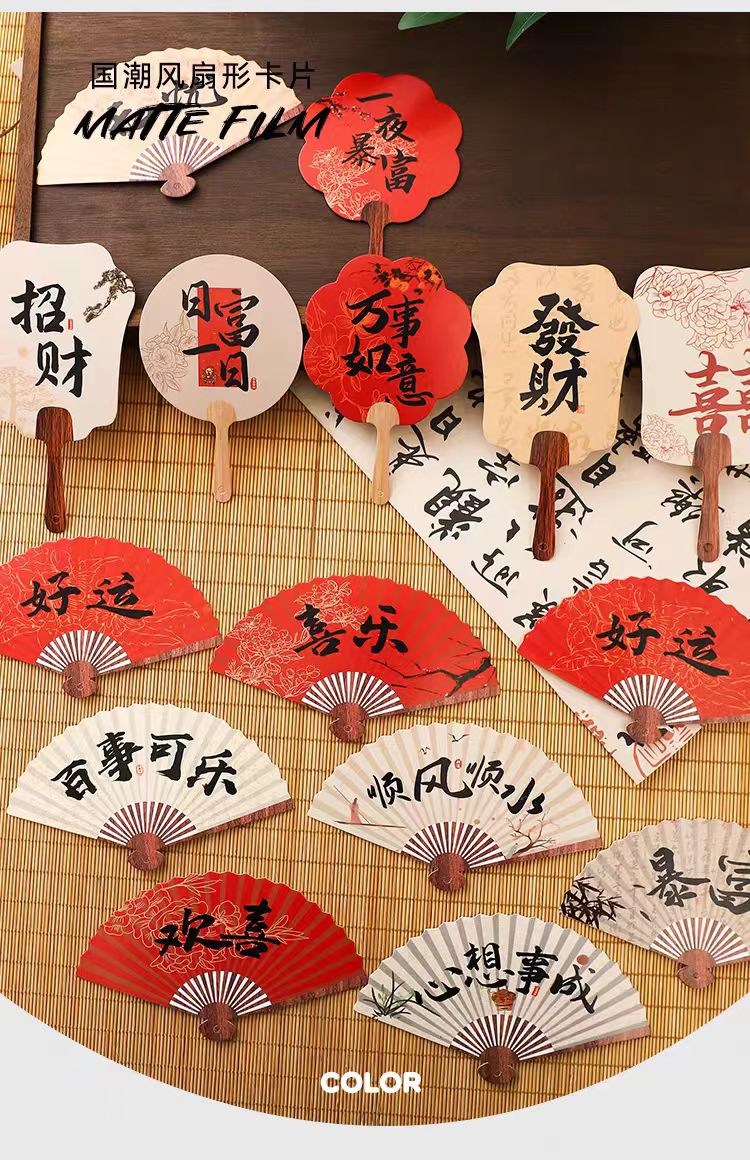 国潮风扇形卡片
MATTE FILM
一夜
暴富
招
财
日富
一日
万事
如意
發
財
囍
好运
喜乐
好运
百事可乐
顺风顺水
暴富
欢喜
心想事成
COLOR